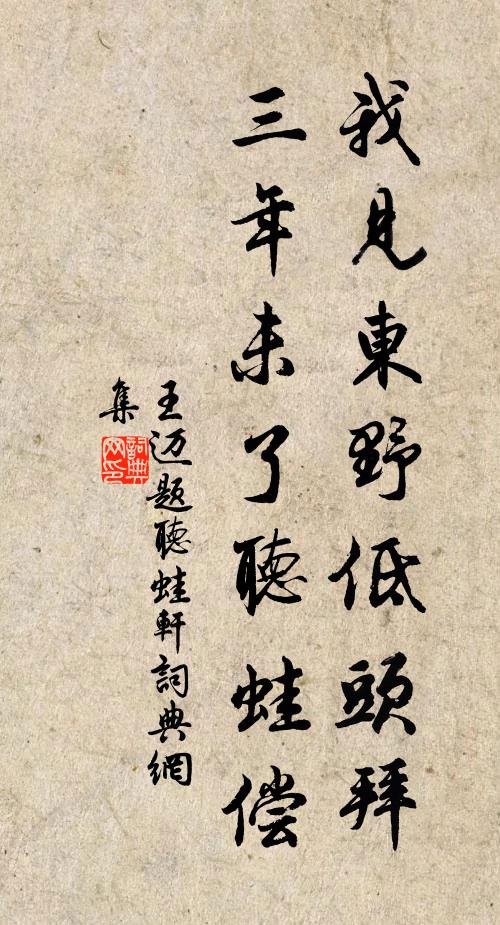 我見東野低頭拜
三年未了聽蛙偿
王迈题聽蛙軒詞典網
集
詞典网印